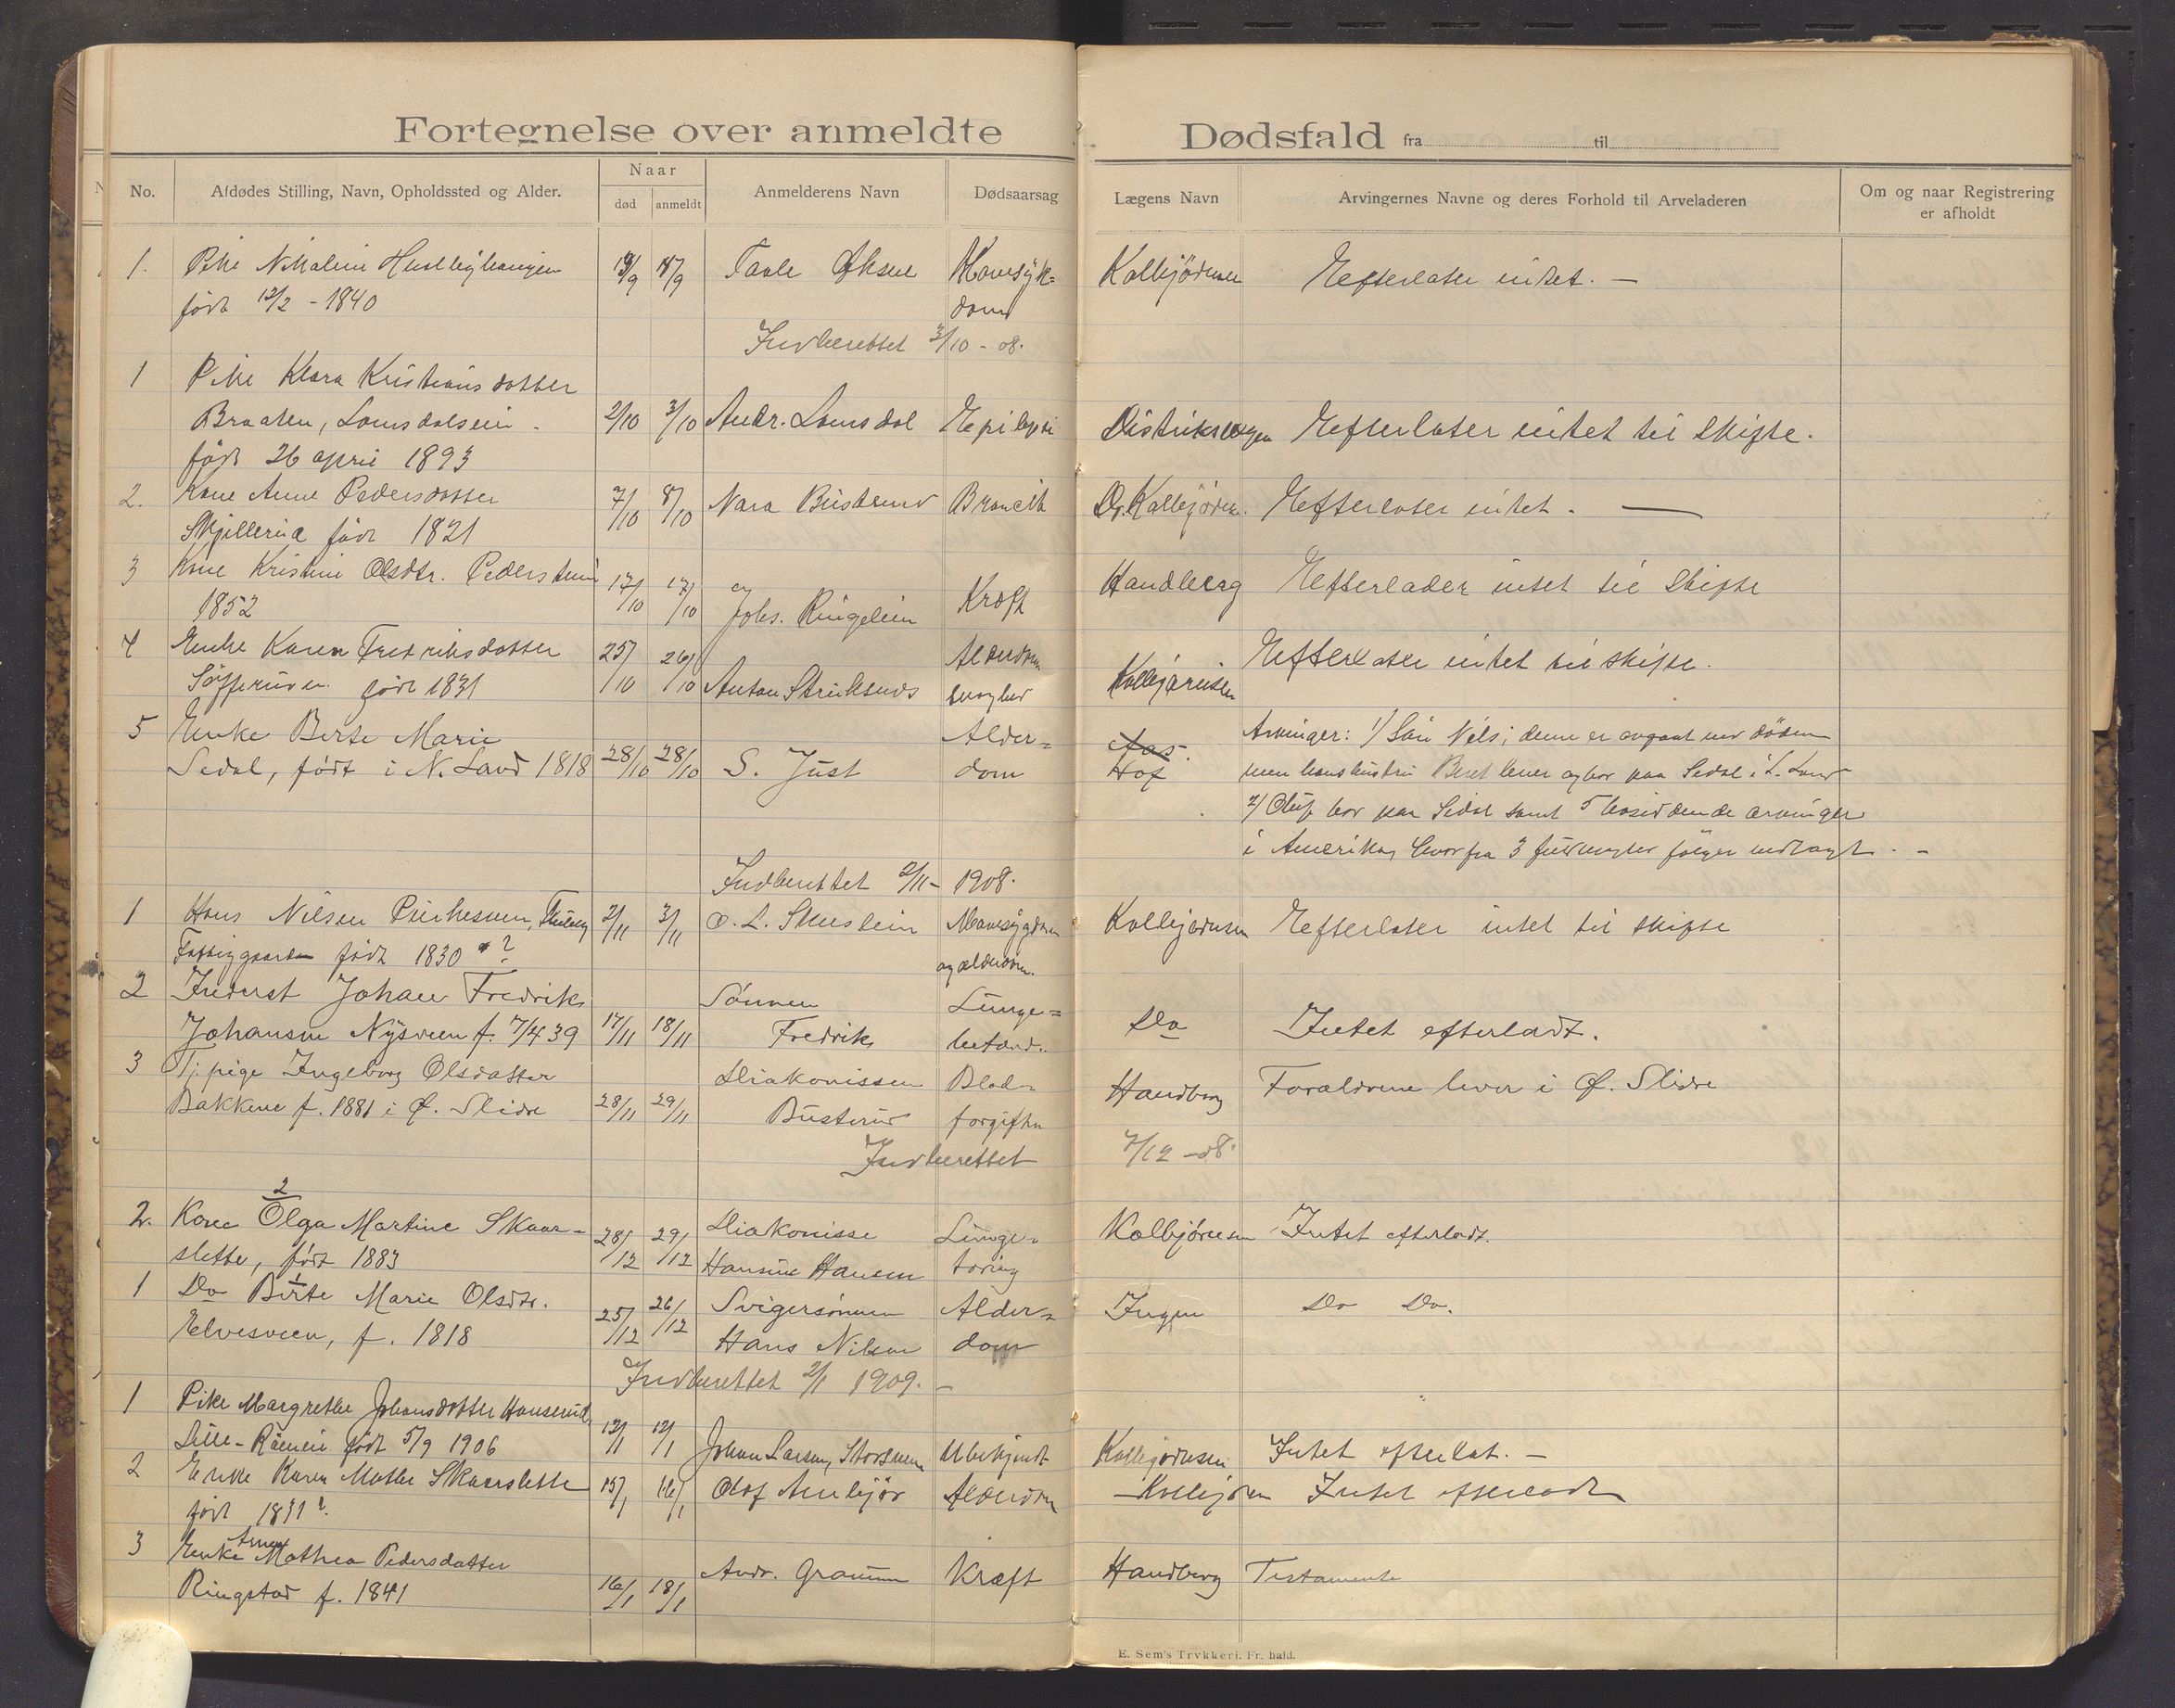 Fortegnelse over anmeldte Dødsfald fra til
No. Afdødes Stilling, Navn, Opholdssted og Alder. Naar død anmeldt Anmelderens Navn Dødsaarsag Lægens Navn Arvingernes Navne og deres Forhold til Arveladeren Om og naar Registrering er afholdt
1. Pike Nikoline 14/9 Mavesyk= Efterlater intet. —
født 12/2 - 1840 dom
Indberettet 3/10 - 08.
1 Pike Klara Kristiansdatter
Braaten, Lomsdalseie 2/10 3/10 Andr. Lomsdal Epilepsi Efterlater intet til skifte.
født 26 april 1893
2. Kone Anne Pedersdatter 7/10 8/10 Dr. Kolbjörns. Efterlater intet. —
født 1821
3 Kone Kristine Olsdtr. 17/10 17/10 Johs. Ringelien Kræft Handberg Efterlader intet til skifte
1852
4 Enke Karen Fredriksdatter 25/10 26/10 Alderdom Efterlater intet til skifte.
født 1831 Anton
5 Enke Berte Marie Alder= Arvinger: 1/ Sön Nils; denne er avgaat ved döden
Sedal, født i N. Land 1818 28/10 28/10 S. Just dom Hof men hans hustru Beret lever og bor paa Sedal i S. Land
2/ Oluf bor paa Sedal samt 5 bosiddende arvinger
i Amerika, hvorfra 3 fuldmagter følger vedlagt. -
Indberettet 2/11 - 1908.
1 Hans Nilsen 2/11 3/11 Mavesygdom Kolbjørnsen Efterlater intet til skifte
Fattiggaarden født 1830 ? og alderdom.
2 Inderst Johan Fredrik Sønnen Lunge=
Johansen Nysveen f. 7/4 39 17/11 18/11 Fredrik betænd. Do Intet efterladt.
3 Tj. pige Ingeborg Olsdatter Diakonissen Blod= Handberg Forældrene lever i Ø. Slidre
Bakkene f. 1881 i Ø. Slidre 28/11 29/11 Busterud forgiftn
Indberettet 7/12 - 08.
2
2. Kone Olga Martine Skaar- 28/12 29/12 Diakonisse Lunge= Kolbjørnsen Intet efterladt.
slette, født 1883 Hansine Hansen tæring
1 Do Berte Marie Olsdtr. 25/12 26/12 Svigersønnen Alder= Ingen Do Do.
Elvesveen, f. 1818 Hans Nilsen dom
Indberettet 2/1 1909. -
1 Pike Margrethe Johansdatter
født 5/9 1906 12/1 12/1 Johan Larsen, Ubekjendt Kolbjørnsen Intet efterlat. -
2 Enke Karen Mathe Skaarslette 15/1 16/1 Olof Alderdom Kolbjörn Intet efterladt
født 1831?
3 Enke Anne Mathea Pedersdatter
Ringstad f. 1841 16/1 18/1 Andr. Kræft Handberg Testamente
E. Sem's Trykkeri. Fr. hald.